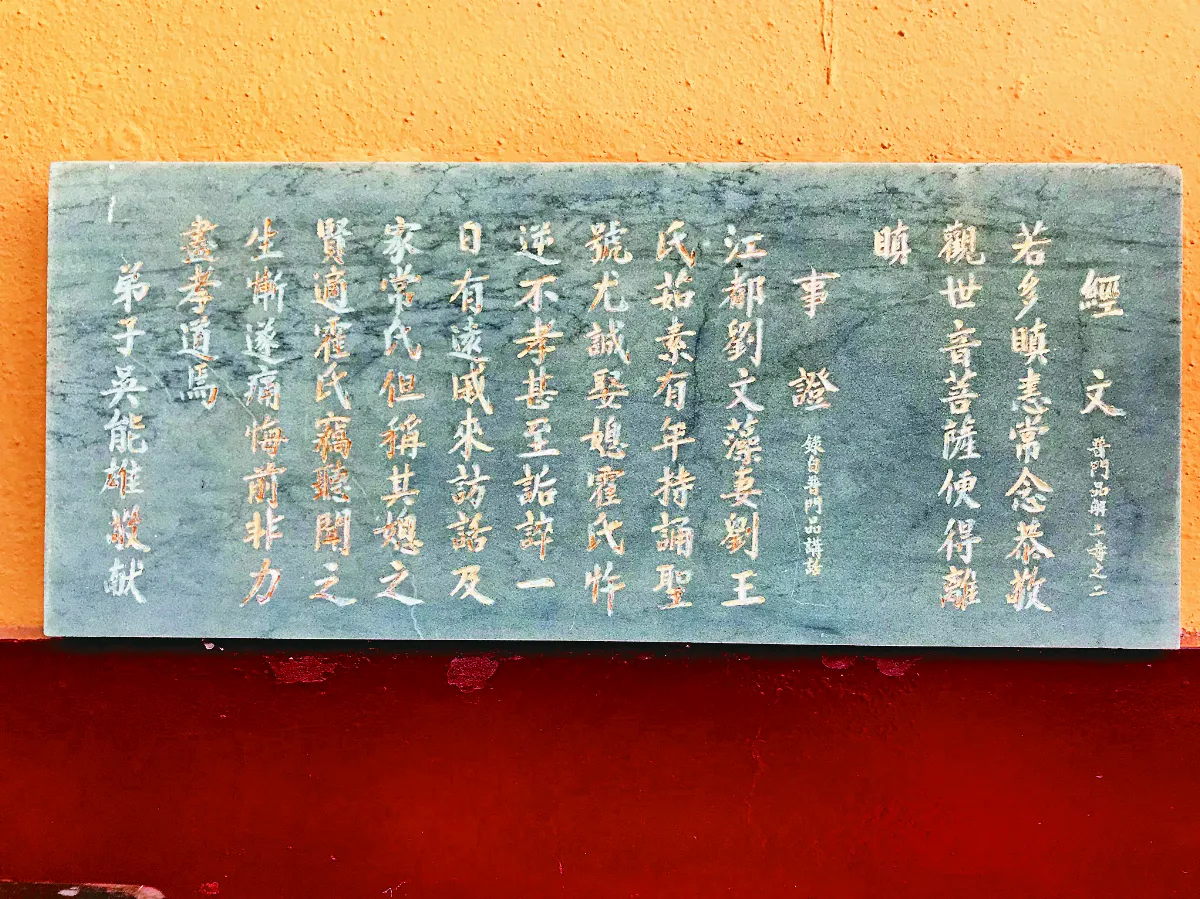 經文 普門品解二毒之二
若多瞋恚常念恭敬
觀世音菩薩便得離
瞋
事證 錄自普門品講話
江都劉文藻妻劉王
氏茹素有年持誦聖
號尤誠娶媳霍氏忤
逆不孝甚至詬誶一
日有遠戚來訪話及
家常氏但稱其媳之
賢適霍氏竊聽聞之
生慚遂痛悔前非力
盡孝道焉
弟子吳能雄敬献